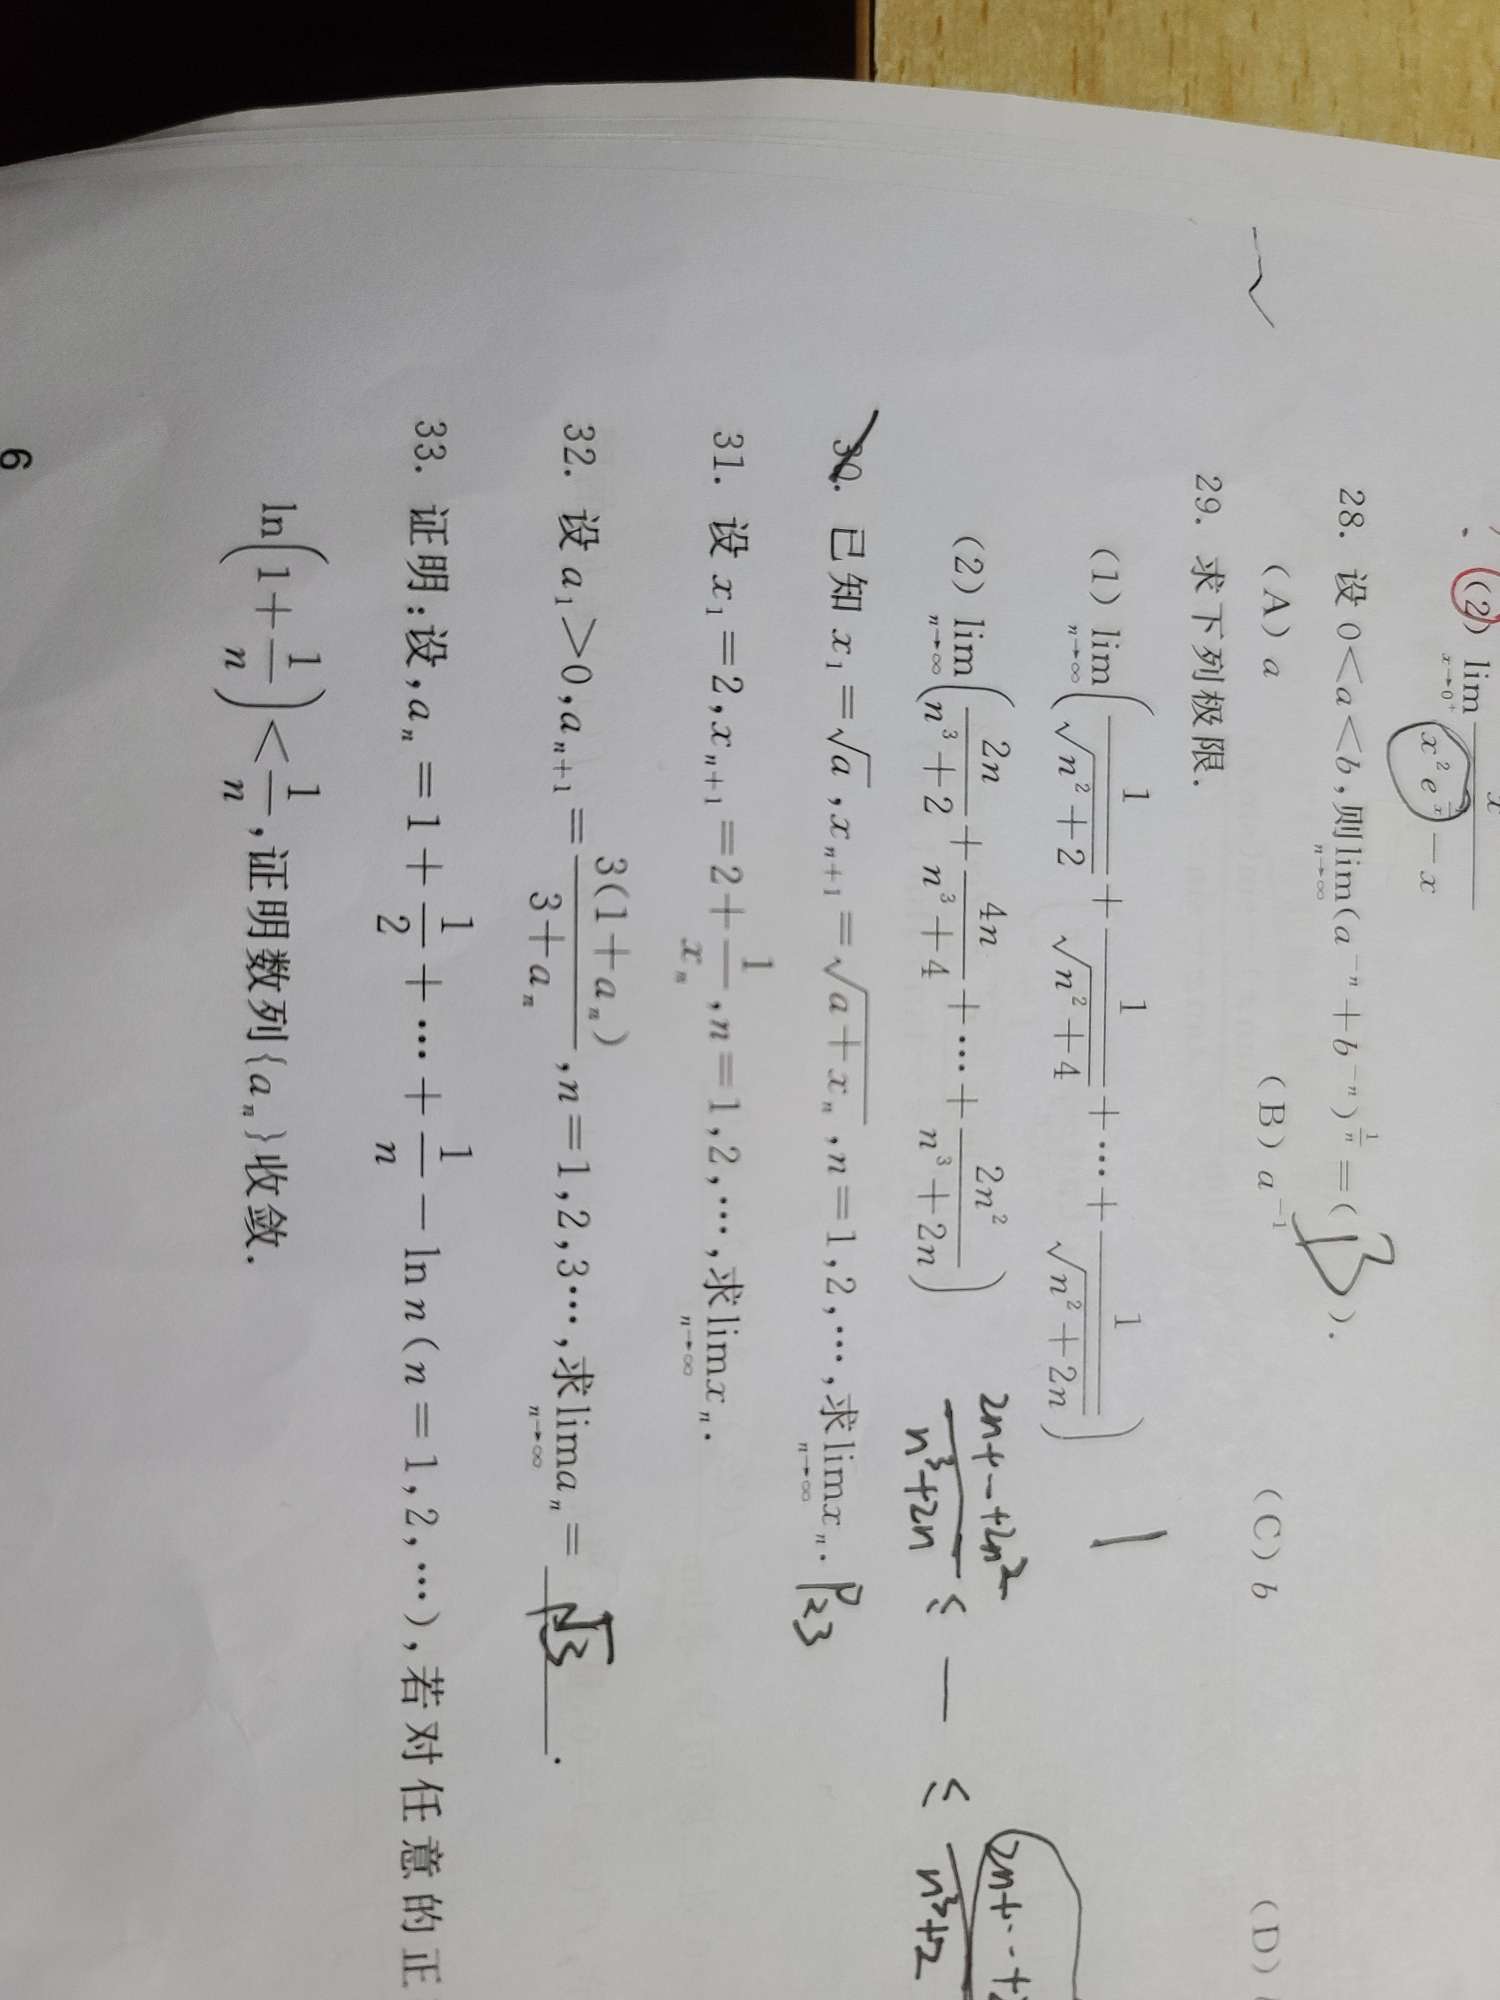 (2) lim_{x→0⁺} x / (x²e^{} − x)
28. 设 0<a<b,则 lim_{n→∞}(a⁻ⁿ+b⁻ⁿ)^{1/n}=( B ).
(A) a (B) a⁻¹ (C) b (D)
29. 求下列极限.
(1) lim_{n→∞}(1/√(n²+2) + 1/√(n²+4) + ⋯ + 1/√(n²+2n)) 1
(2) lim_{n→∞}(2n/(n³+2) + 4n/(n³+4) + ⋯ + 2n²/(n³+2n)) (2n+⋯+2n²)/(n³+2n) ≤ — ≤ (2n+⋯+)/(n³+2)
30. 已知 x₁=√a,xₙ₊₁=√(a+xₙ),n=1,2,⋯,求 lim_{n→∞} xₙ. P23
31. 设 x₁=2,xₙ₊₁=2+1/xₙ,n=1,2,⋯,求 lim_{n→∞} xₙ.
32. 设 a₁>0,aₙ₊₁=3(1+aₙ)/(3+aₙ),n=1,2,3⋯,求 lim_{n→∞} aₙ= √3 .
33. 证明:设,aₙ=1+1/2+⋯+1/n−ln n(n=1,2,⋯),若对任意的正
ln(1+1/n)<1/n,证明数列{aₙ}收敛.
6